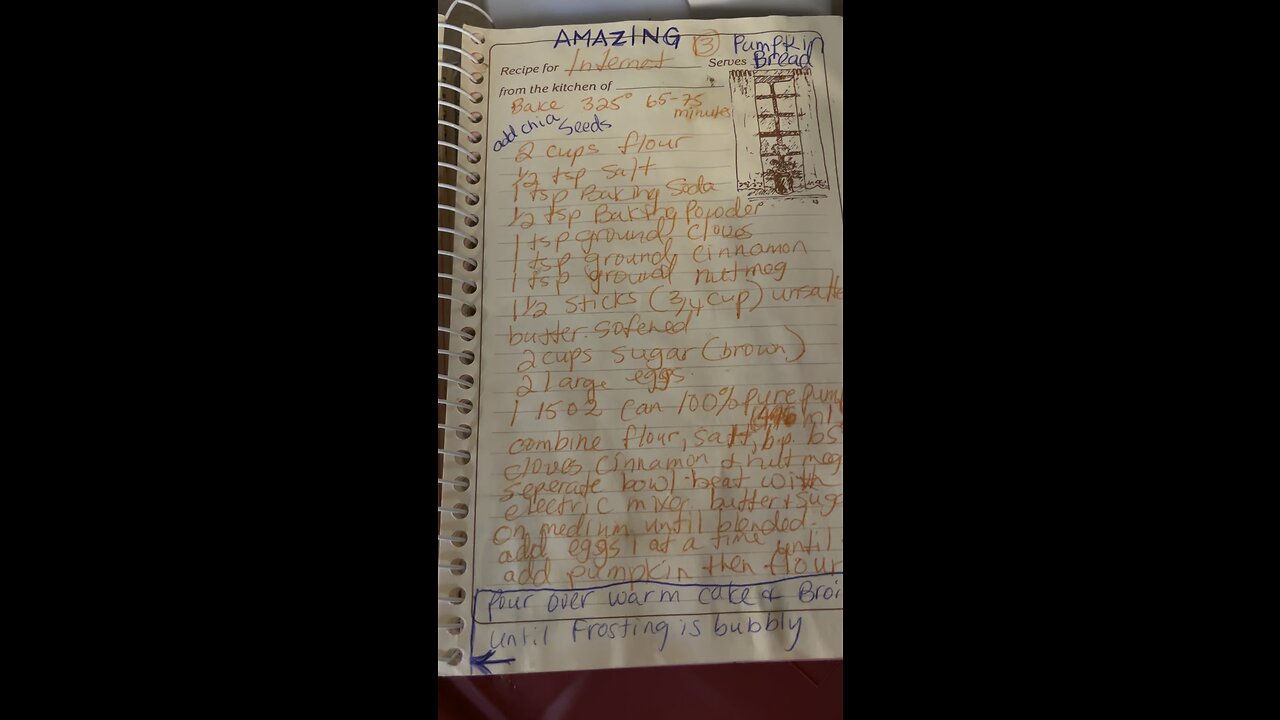 AMAZING ③ Pumpkin
Recipe for Internet Serves Bread
from the kitchen of
Bake 325° 65-75
minutes
add chia seeds
2 cups flour
1/2 tsp salt
1 tsp Baking Soda
1/2 tsp Baking Powder
1 tsp ground cloves
1 tsp ground cinnamon
1 tsp ground nutmeg
1 1/2 sticks (3/4 cup) unsalte
butter sofened
2 cups sugar (brown)
2 large eggs
1 15 oz can 100% pure pum
ml
combine flour, salt, b.p. bs
cloves cinnamon & nutmeg
seperate bowl-beat with
electric mixer butter + sug
on medium until blended.
add eggs 1 at a time until
add pumpkin then flour
Pour over warm cake & Broi
until Frosting is bubbly